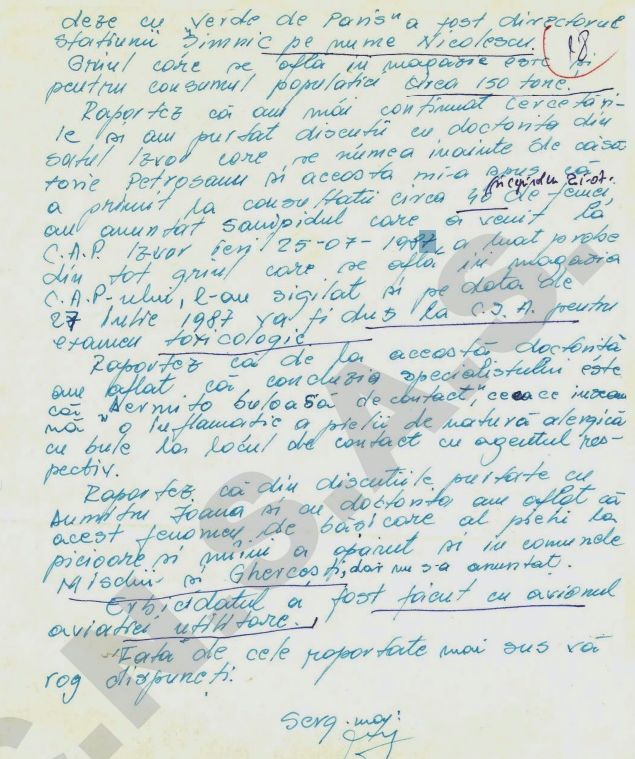 deze cu Verde de Paris" a fost directorul
stațiunii Șimnic pe nume Nicolescu.
18
Grîul care se afla în magazie este și
pentru consumul populației circa 150 tone.
Raportez că am mai continuat cercetări-
le și am purtat discuții cu doctorița din
satul Izvor care se numea înainte de căsă
torie Petroșanu și aceasta mi-a spus că
începînd cu 21-07.
a primit la consultații circa 40 de femei,
au anunțat Sanipidul care a venit la
C.A.P. Izvor ieri 25-07-1987, a luat probe
din tot grîul care se află în magazia
C.A.P-ului, l-au sigilat și pe data de
27 Iulie 1987 va fi dus la C.J.A. pentru
examen toxicologic.
Raportez că de la această doctoriță
am aflat că concluzia specialistului este
că "Dermito buloasă de contact", ceea ce inseam
nă o inflamație a pielii de natură alergică
cu bule la locul de contact cu agentul res-
pectiv.
Raportez că din discuțiile purtate cu
Dumitru Ioana și cu doctorița am aflat că
acest fenomen de bășicare al pielii la
picioare și mîini a apărut și în comunele
Mischii și Ghercești, dar nu s-a anunțat.
Erbicidatul a fost făcut cu avionul
aviației utilitare.
Față de cele raportate mai sus vă
rog dispuneți.
Serg. maj.
C.N.S.A.S.